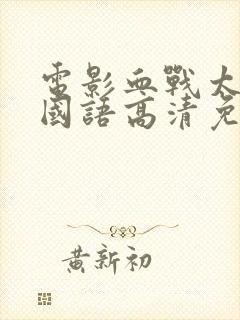 電影血戰太
國語高清免
黃新初